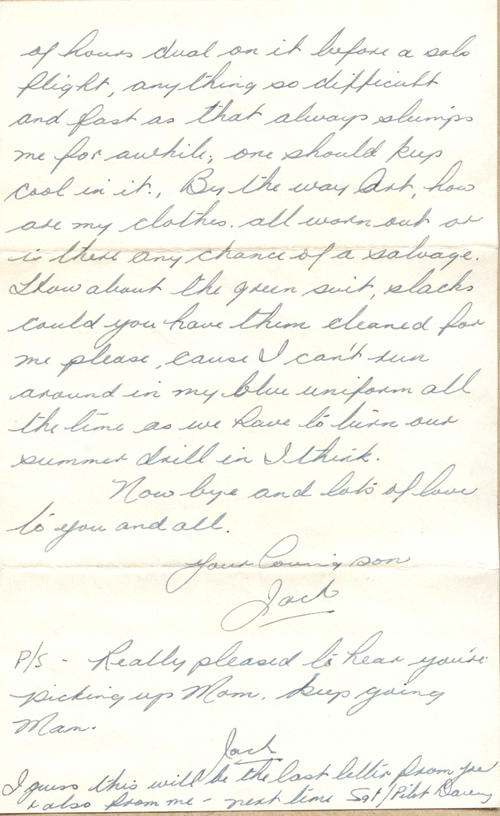 of hours dual on it before a solo
flight, anything so difficult
and fast as that always slumps
me for awhile, one should keep
cool in it., By the way Art, how
are my clothes. all worn out or
is there any chance of a salvage.
How about the green suit, slacks
could you have them cleaned for
me please, cause I can't run
around in my blue uniform all
the time as we have to turn our
summer drill in I think.
Now bye and lots of love
to you and all.
Your loving son
Jack
P/S - Really pleased to hear you're
picking up Mom. keep going
Mam.
Jack
I guess this will be the last letter from you
& also from me - next time Sgt/Pilot